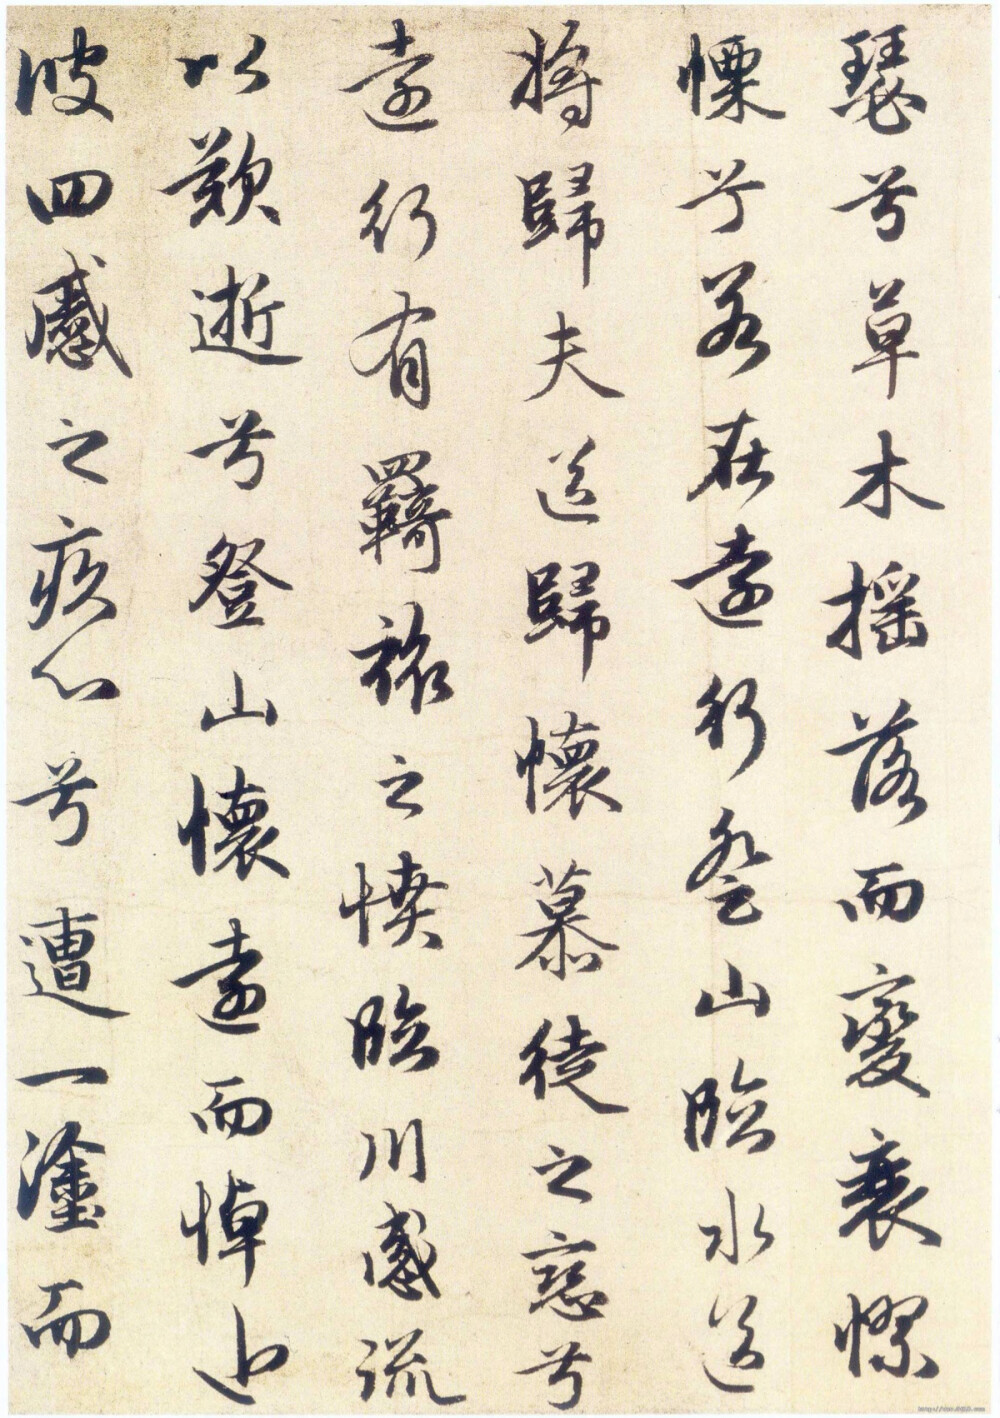 瑟兮草木搖落而變衰憀
慄兮若在遠行登山臨水送
將歸夫送歸懷慕徒之戀兮
遠行有羈旅之憤臨川感流
以歎逝兮登山懷遠而悼近
彼四慼之疚心兮遭一塗而